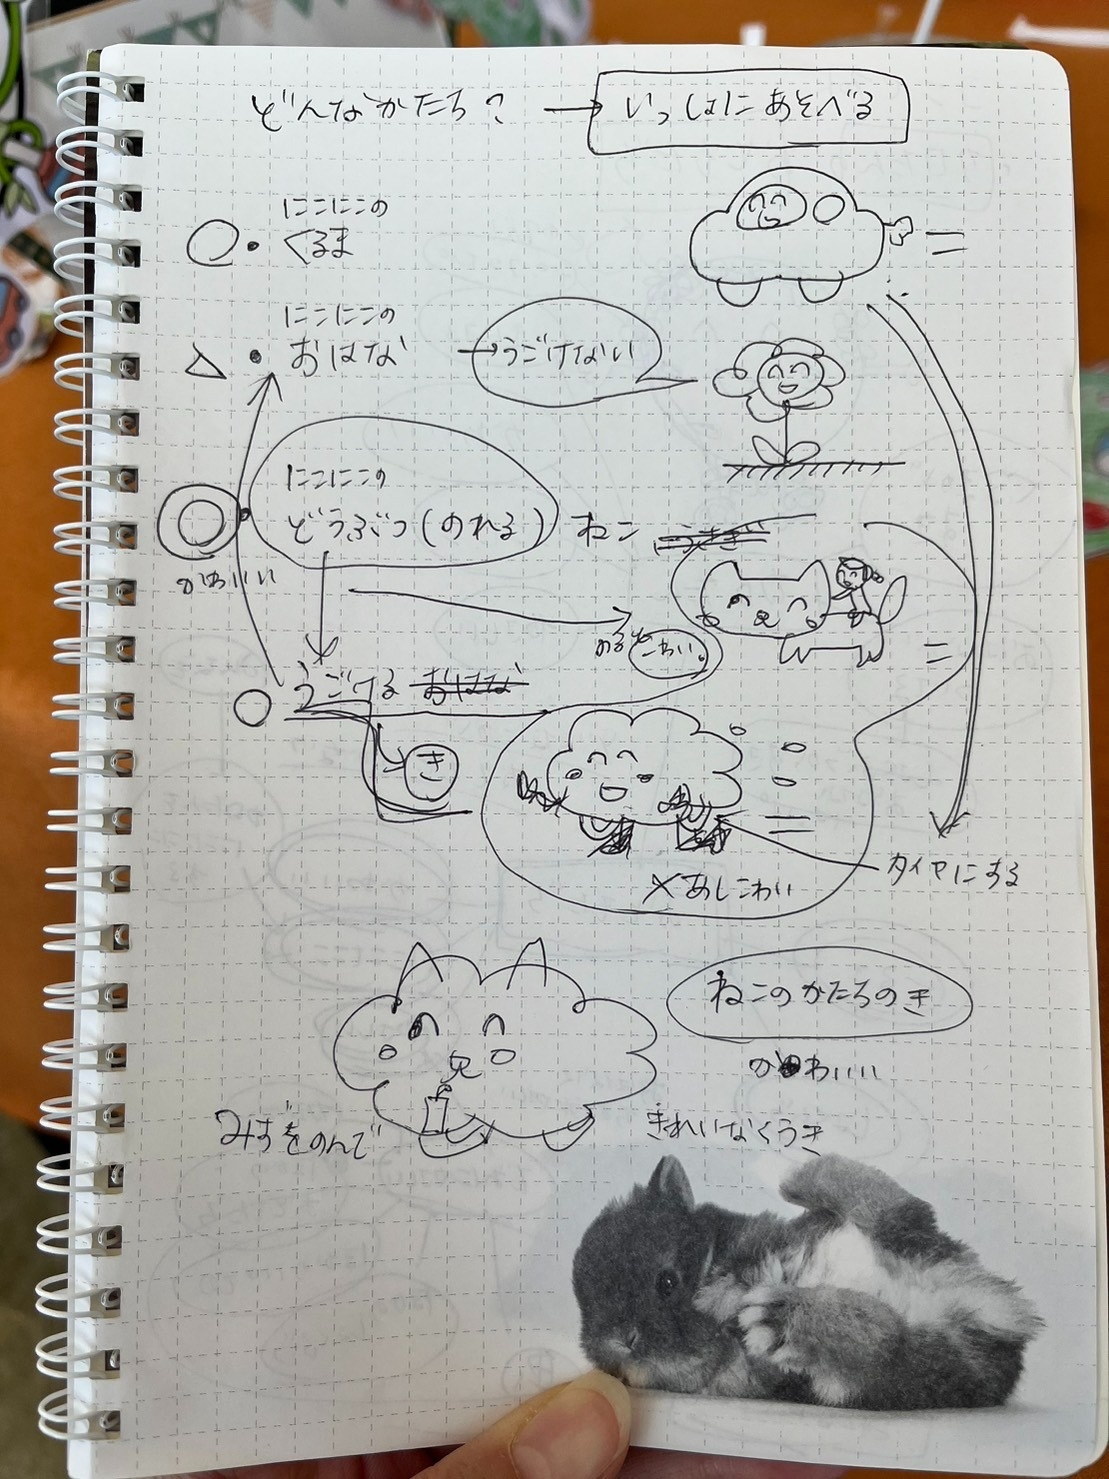 どんなかたち? → いっしょにあそべる
にこにこの
くるま
にこにこの
おはな → うごけない
にこにこの
どうぶつ(のれる) ねこ うさぎ
かわいい
のるとこわい。
うごける おはな
き
タイヤにする
×あしこわい
ねこのかたちのき
かわいい
みずをのんで
きれいなくうき